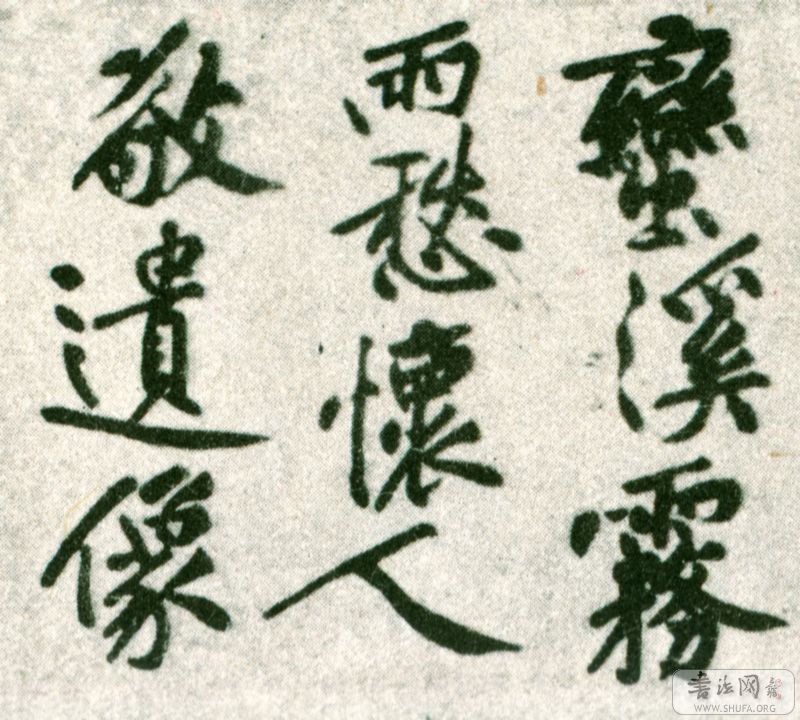 蠻溪霧
雨愁懷人
敬遺像
书法网
WWW.SHUFA.ORG